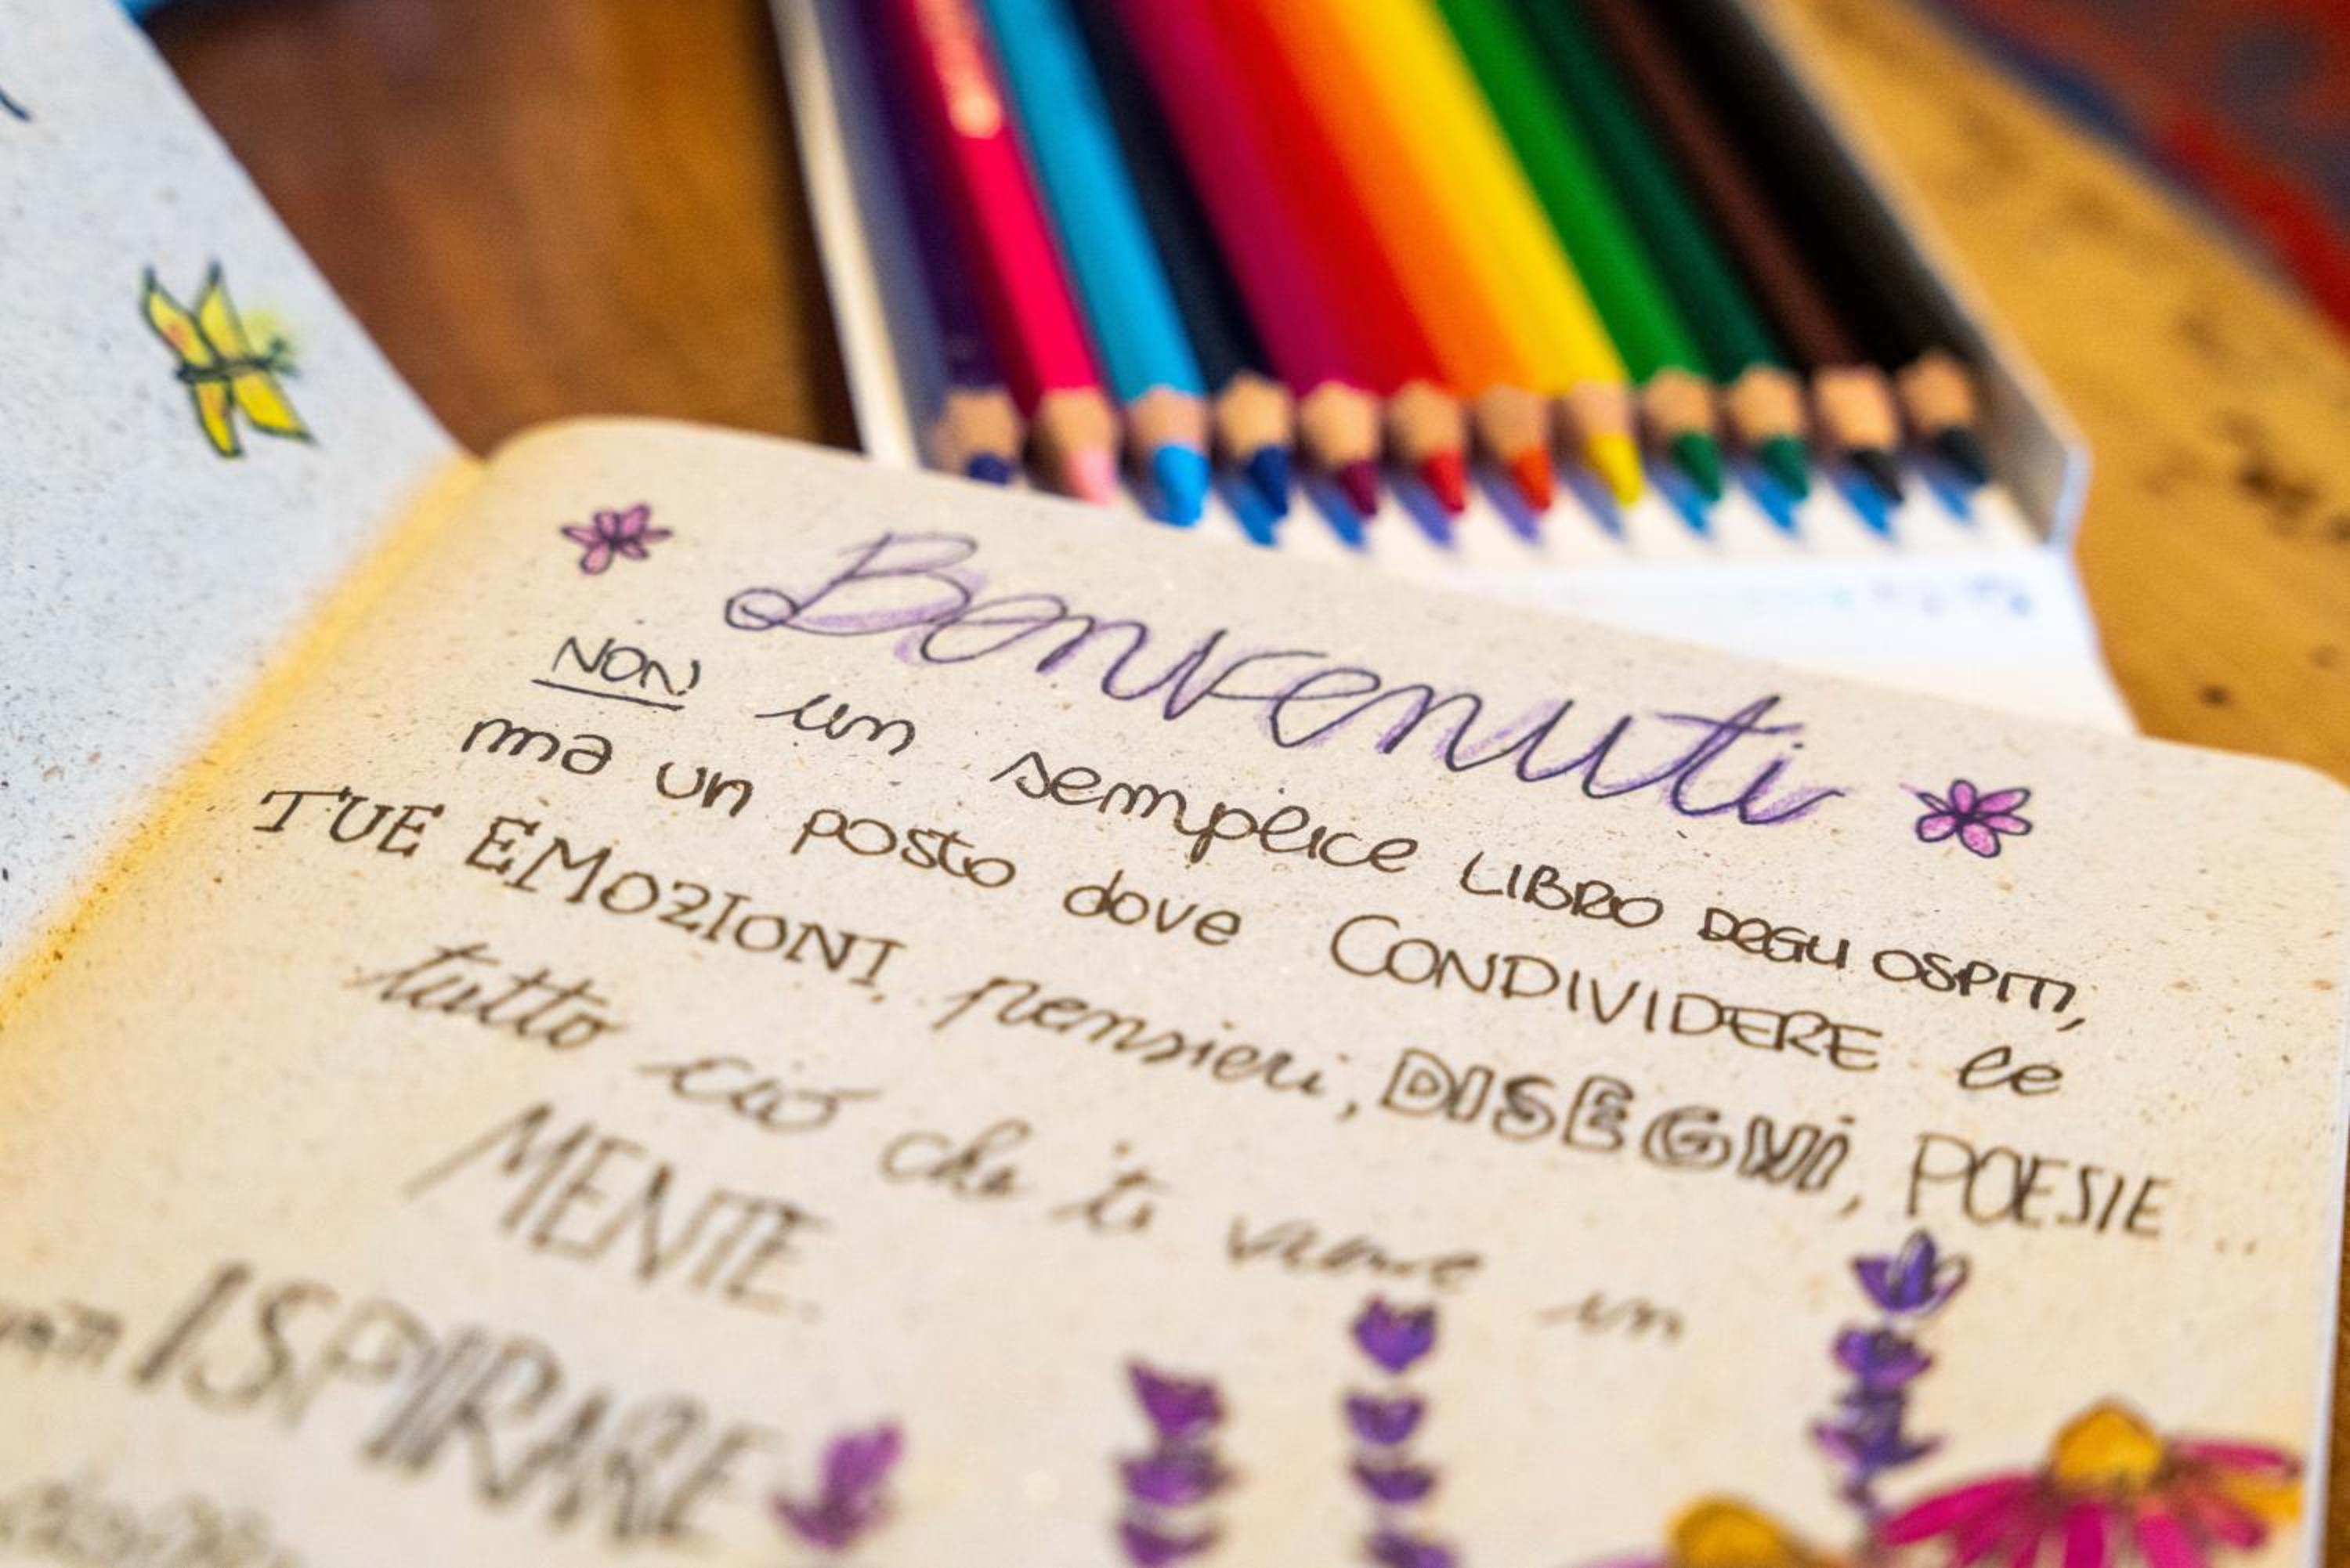 Benvenuti
NON un semplice LIBRO DEGLI OSPITI,
ma un posto dove CONDIVIDERE le
TUE EMOZIONI, pensieri, DISEGNI, POESIE...
tutto ciò che ti viene in
MENTE.
ISPIRARE